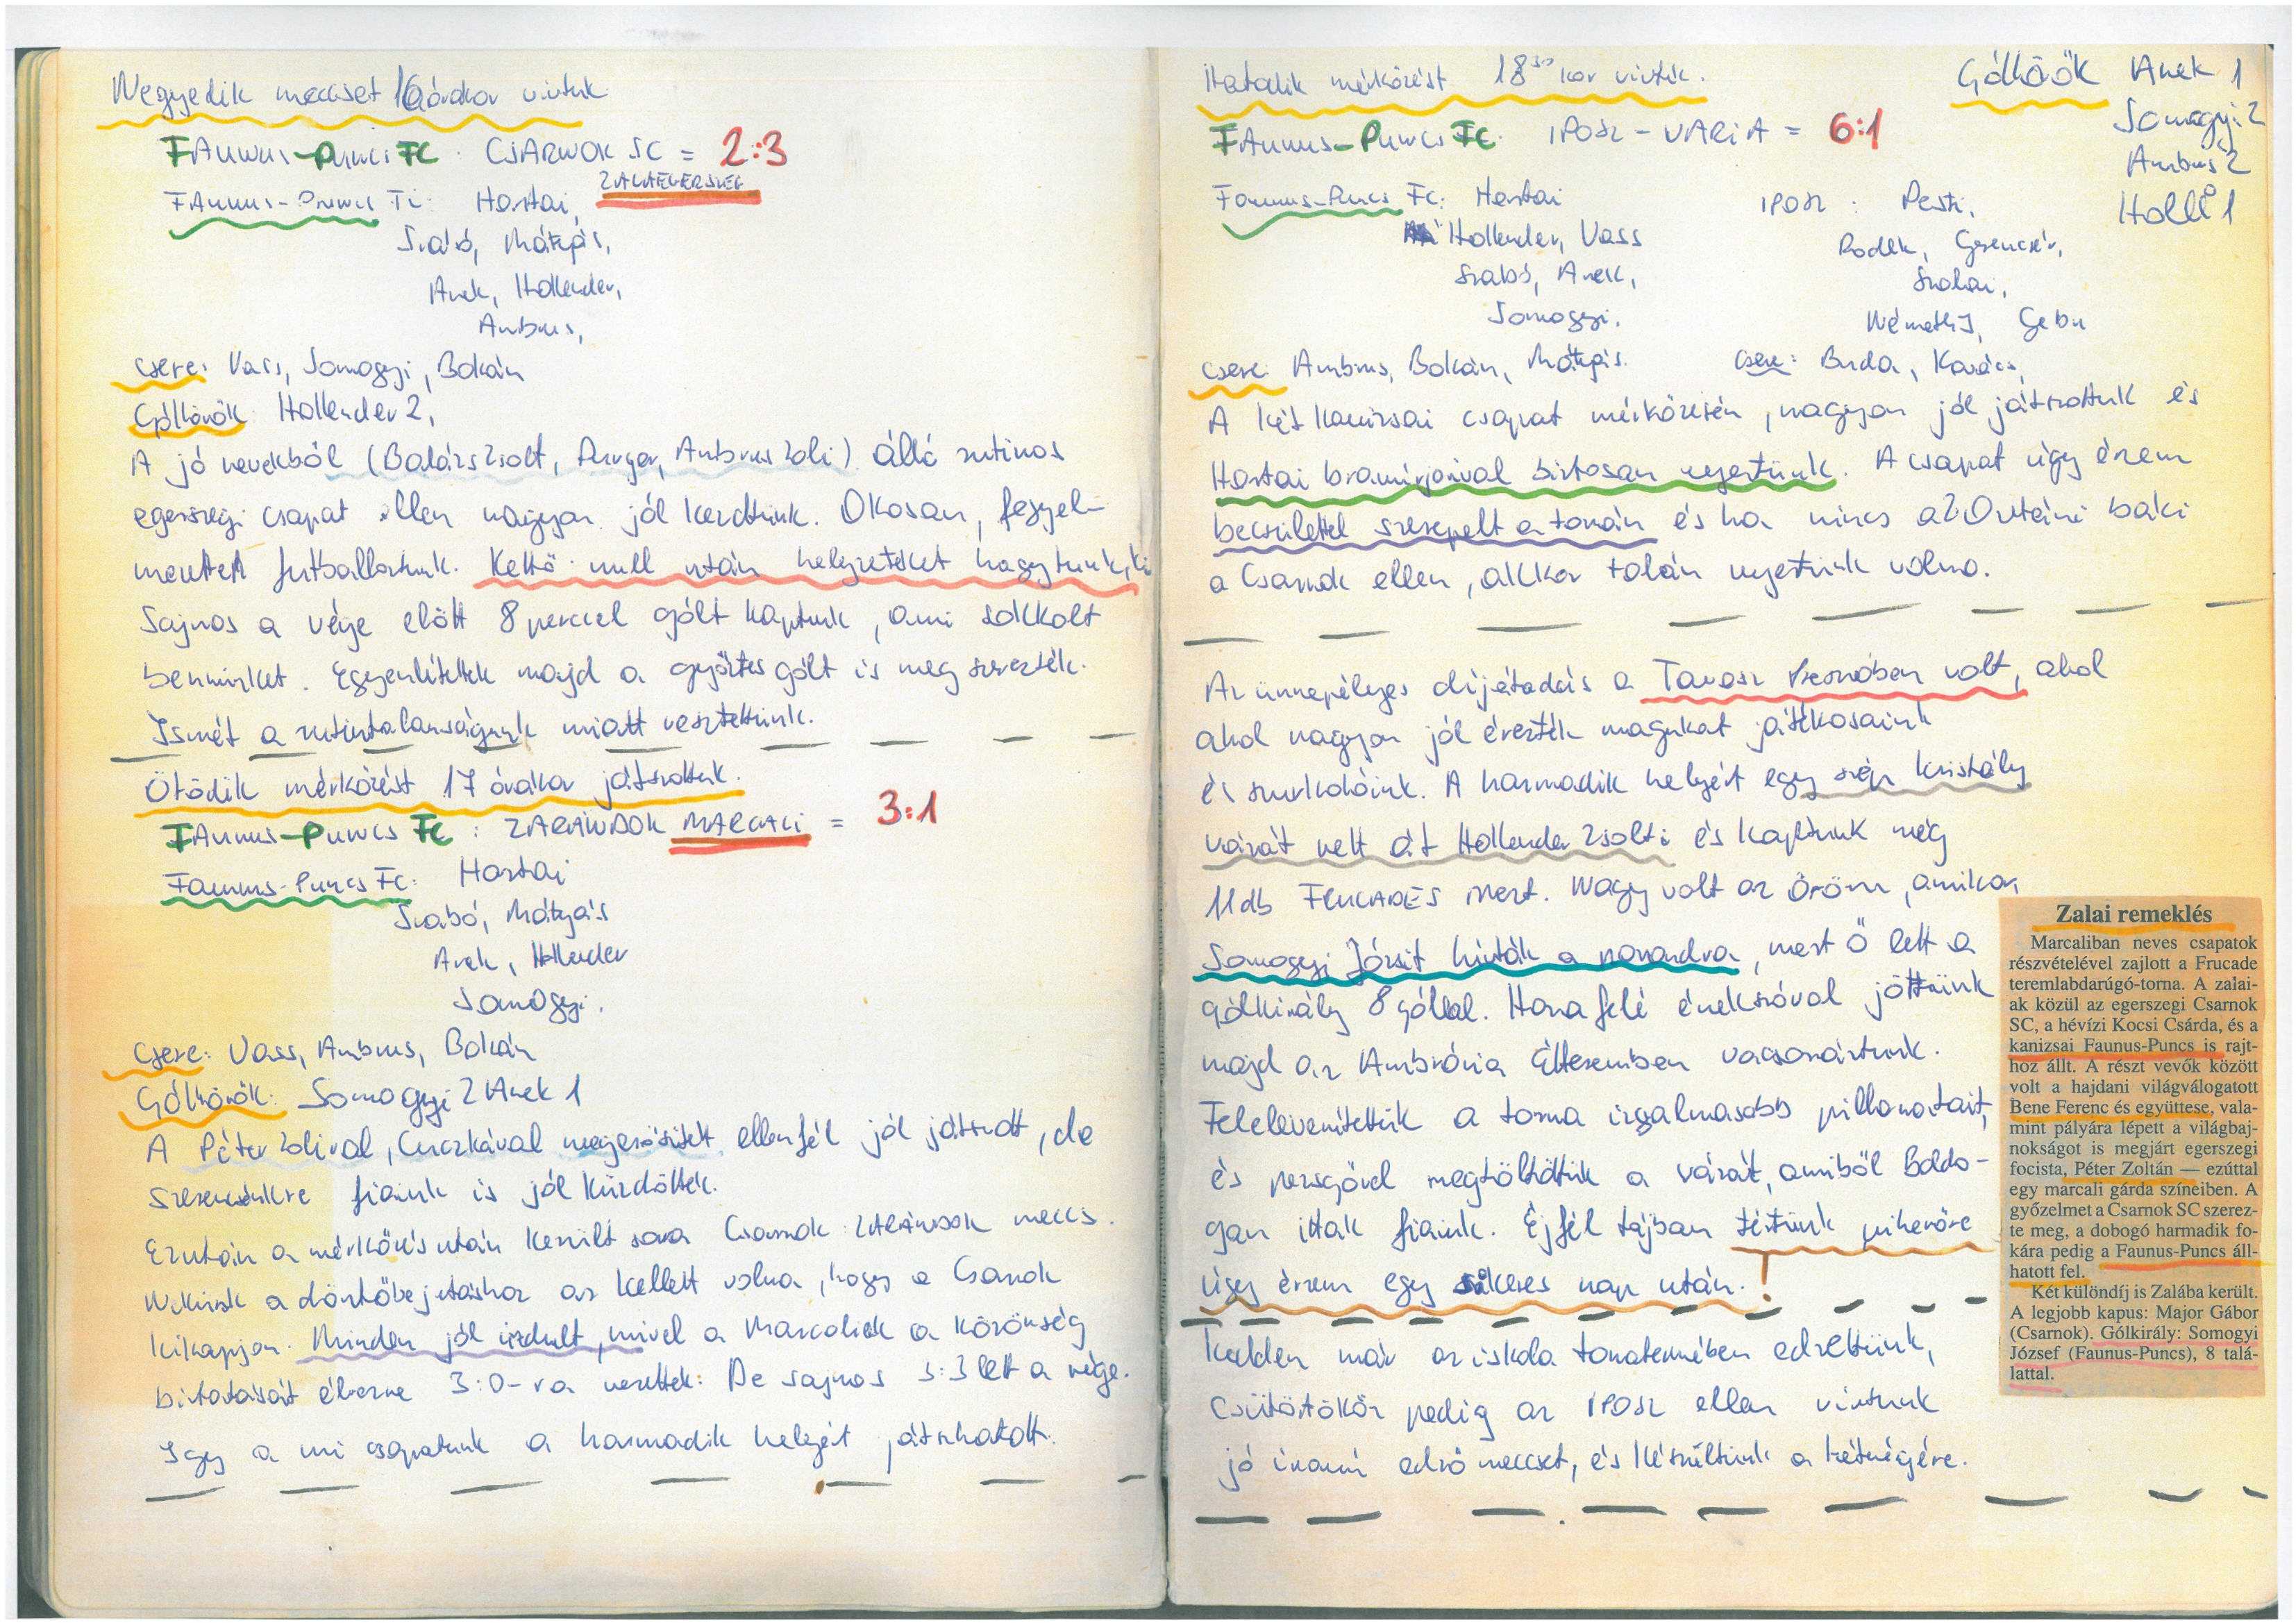 Negyedik meccset 16 órakor vívtuk
FAUNUS-PUNCS FC : CSARNOK SC = 2:3
ZALAEGERSZEG
FAUNUS-PUNCS FC: Hartai,
Szabó, Mátyás,
Anek, Hollender,
Ambrus,
Csere: Vass, Somogyi, Bokán
Góllövők: Hollender 2,
A jó nevekből (Balázs Zsolt, Ambrus Zoli) álló rutinos
egerszegi csapat ellen nagyon jól kezdtünk. Okosan, fegyel-
mezetten futballoztunk. Kettő null után helyzeteket hagytunk ki
Sajnos a vége előtt 8 perccel gólt kaptunk, ami sokkolt
bennünket. Egyenlítettek majd a győztes gólt is megszerezték.
Ismét a rutintalanságunk miatt vesztettünk.
Ötödik mérkőzést 17 órakor játszottuk.
FAUNUS-PUNCS FC : ZARÁNDOK MARCALI = 3:1
Faunus-Puncs FC: Hartai
Szabó, Mátyás
Anek, Hollender
Somogyi.
Csere: Vass, Ambrus, Bokán
Góllövők: Somogyi 2 Anek 1
A Péter Zolival, Cuczkával megerősített ellenfél jól játszott, de
szerencsénkre fiaink is jól küzdöttek.
Ezután a mérkőzés után került sora Csarnok : ZARÁNDOK meccs.
Nekünk a döntőbejutáshoz az kellett volna, hogy a Csarnok
kikapjon. Minden jól indult, mivel a Marcaliak a közönség
biztatását élvezve 3:0-ra vezettek. De sajnos 3:3 lett a vége.
Igy a mi csapatunk a harmadik helyért játszhatott.
Hatodik mérkőzést 18³⁰ kor vívtuk.
FAUNUS-PUNCS FC : IPOSZ - VARIA = 6:1
Góllövők Anek 1
Somogyi 2
Ambrus 2
Holló 1
Faunus-Puncs FC: Hartai
Hollender, Vass
Szabó, Anek,
Somogyi.
Csere: Ambrus, Bokán, Mátyás.
IPOSZ : Pesti,
Rodek, Gerencsér,
Szolai,
Németh J, Gebu
Csere: Buda, Kovács,
A két kanizsai csapat mérkőzésén, nagyon jól játszottunk és
Hartai bravúrjaival biztosan nyertünk. A csapat úgy érzem
becsülettel szerepelt a tornán és ha nincs az Oveténi baki
a Csarnok ellen, akkor talán nyertünk volna.
Az ünnepélyes díjátadás a Tavasz Presszóban volt, ahol
ahol nagyon jól érezték magukat játékosaink
és szurkolóink. A harmadik helyért egy szép kristály
vázát vett át Hollender Zsolti és kaptunk még
11 db FRUCADES mezt. Nagy volt az öröm, amikor
Somogyi Józsit hívták a porondra, mert ő lett a
gólkirály 8 góllal. Haza felé énekszóval jöttünk
majd az Ambrózia Étteremben vacsoráztunk.
Felelevenítettük a torna izgalmasabb pillanatait,
és pezsgővel megtöltöttük a vázát, amiből Boldo-
gan ittak fiaink. Éjfél tájban tértünk pihenőre
úgy érzem egy sikeres nap után. !
Kedden már az iskola tornatermében edzettünk,
Csütörtökön pedig az IPOSZ ellen vívtunk
jó iramú edző meccset, és készültünk a hétvégére.
Zalai remeklés
Marcaliban neves csapatok
részvételével zajlott a Frucade
teremlabdarúgó-torna. A zalai-
ak közül az egerszegi Csarnok
SC, a hévízi Kocsi Csárda, és a
kanizsai Faunus-Puncs is rajt-
hoz állt. A részt vevők között
volt a hajdani világválogatott
Bene Ferenc és együttese, vala-
mint pályára lépett a világbaj-
nokságot is megjárt egerszegi
focista, Péter Zoltán — ezúttal
egy marcali gárda színeiben. A
győzelmet a Csarnok SC szerez-
te meg, a dobogó harmadik fo-
kára pedig a Faunus-Puncs áll-
hatott fel.
Két különdíj is Zalába került.
A legjobb kapus: Major Gábor
(Csarnok). Gólkirály: Somogyi
József (Faunus-Puncs), 8 talá-
lattal.